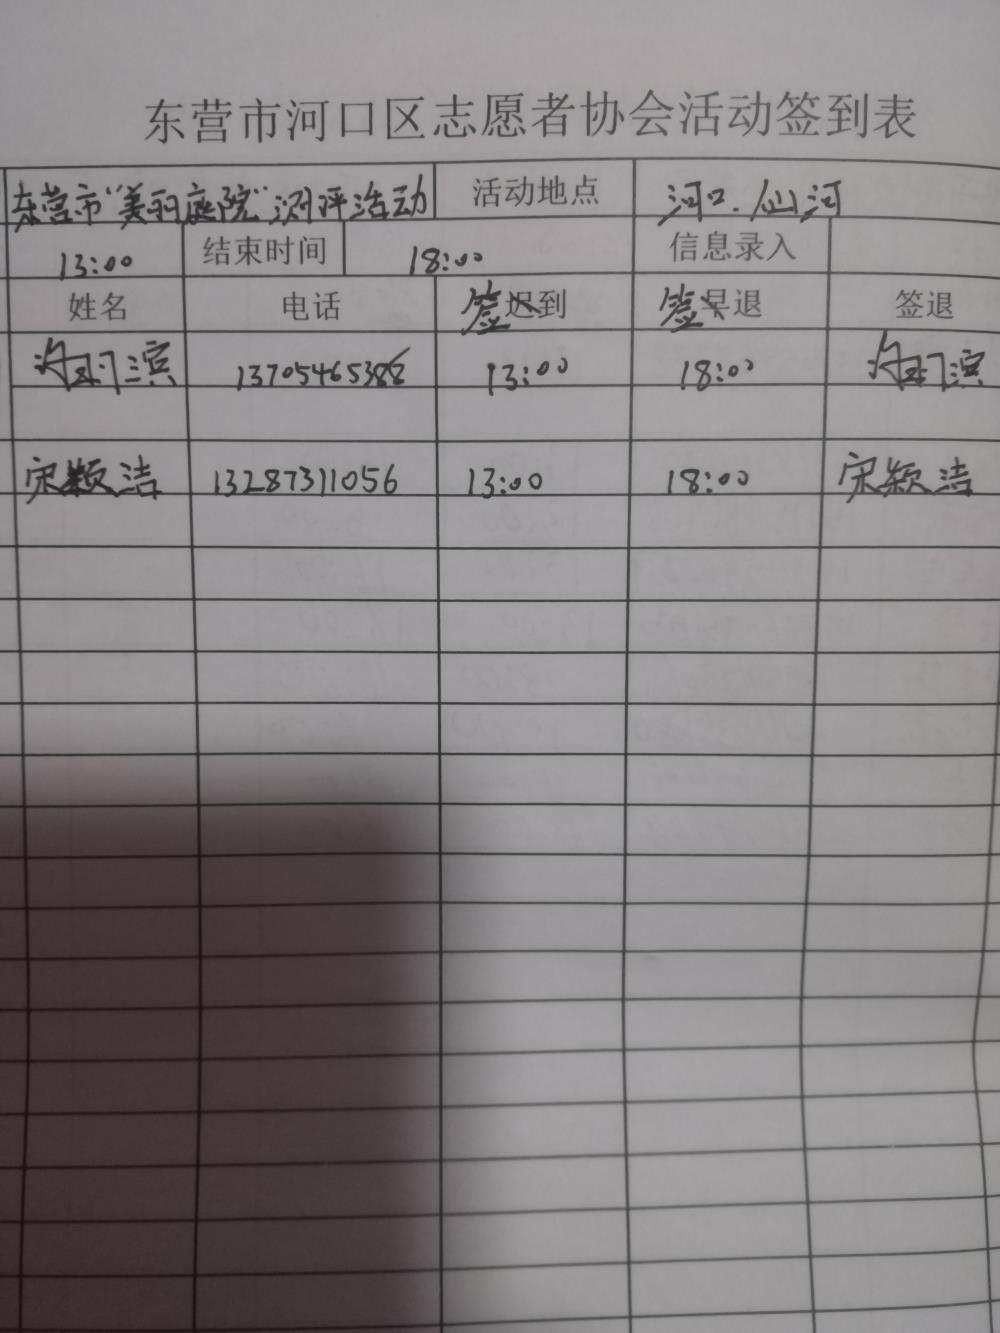 东营市河口区志愿者协会活动签到表
东营市“美丽庭院”测评活动 活动地点 河口.仙河
13:00 结束时间 18:00 信息录入
姓名 电话 签到 签退 签退
滨 1370546538 13:00 18:00 滨
宋颖洁 13287311056 13:00 18:00 宋颖洁